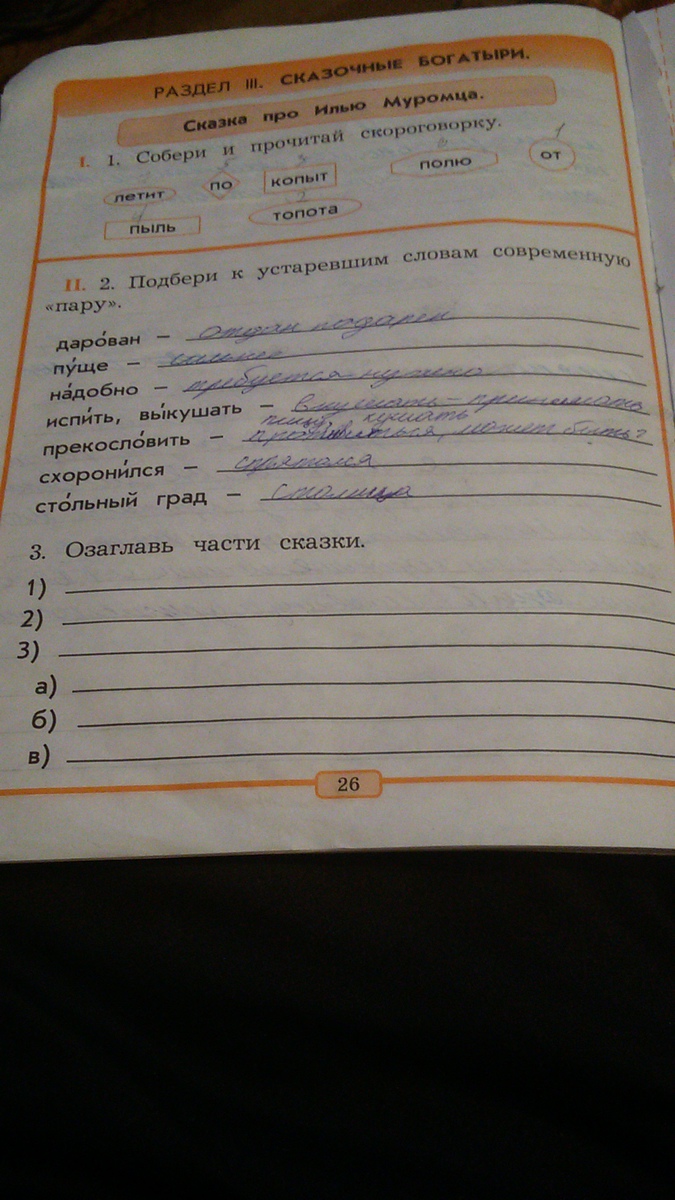 РАЗДЕЛ III. СКАЗОЧНЫЕ БОГАТЫРИ.
Сказка про Илью Муромца.
I. 1. Собери и прочитай скороговорку.
летит по копыт полю от
пыль топота
II. 2. Подбери к устаревшим словам современную
«пару».
даро́ван – отдан подарен
пу́ще – сильнее
на́добно – требуется нужно
испи́ть, вы́кушать – вкушать – принимать
пищу, кушать
прекосло́вить – противиться, может быть?
схорони́лся – спрятался
сто́льный град – столица
3. Озаглавь части сказки.
1)
2)
3)
а)
б)
в)
26